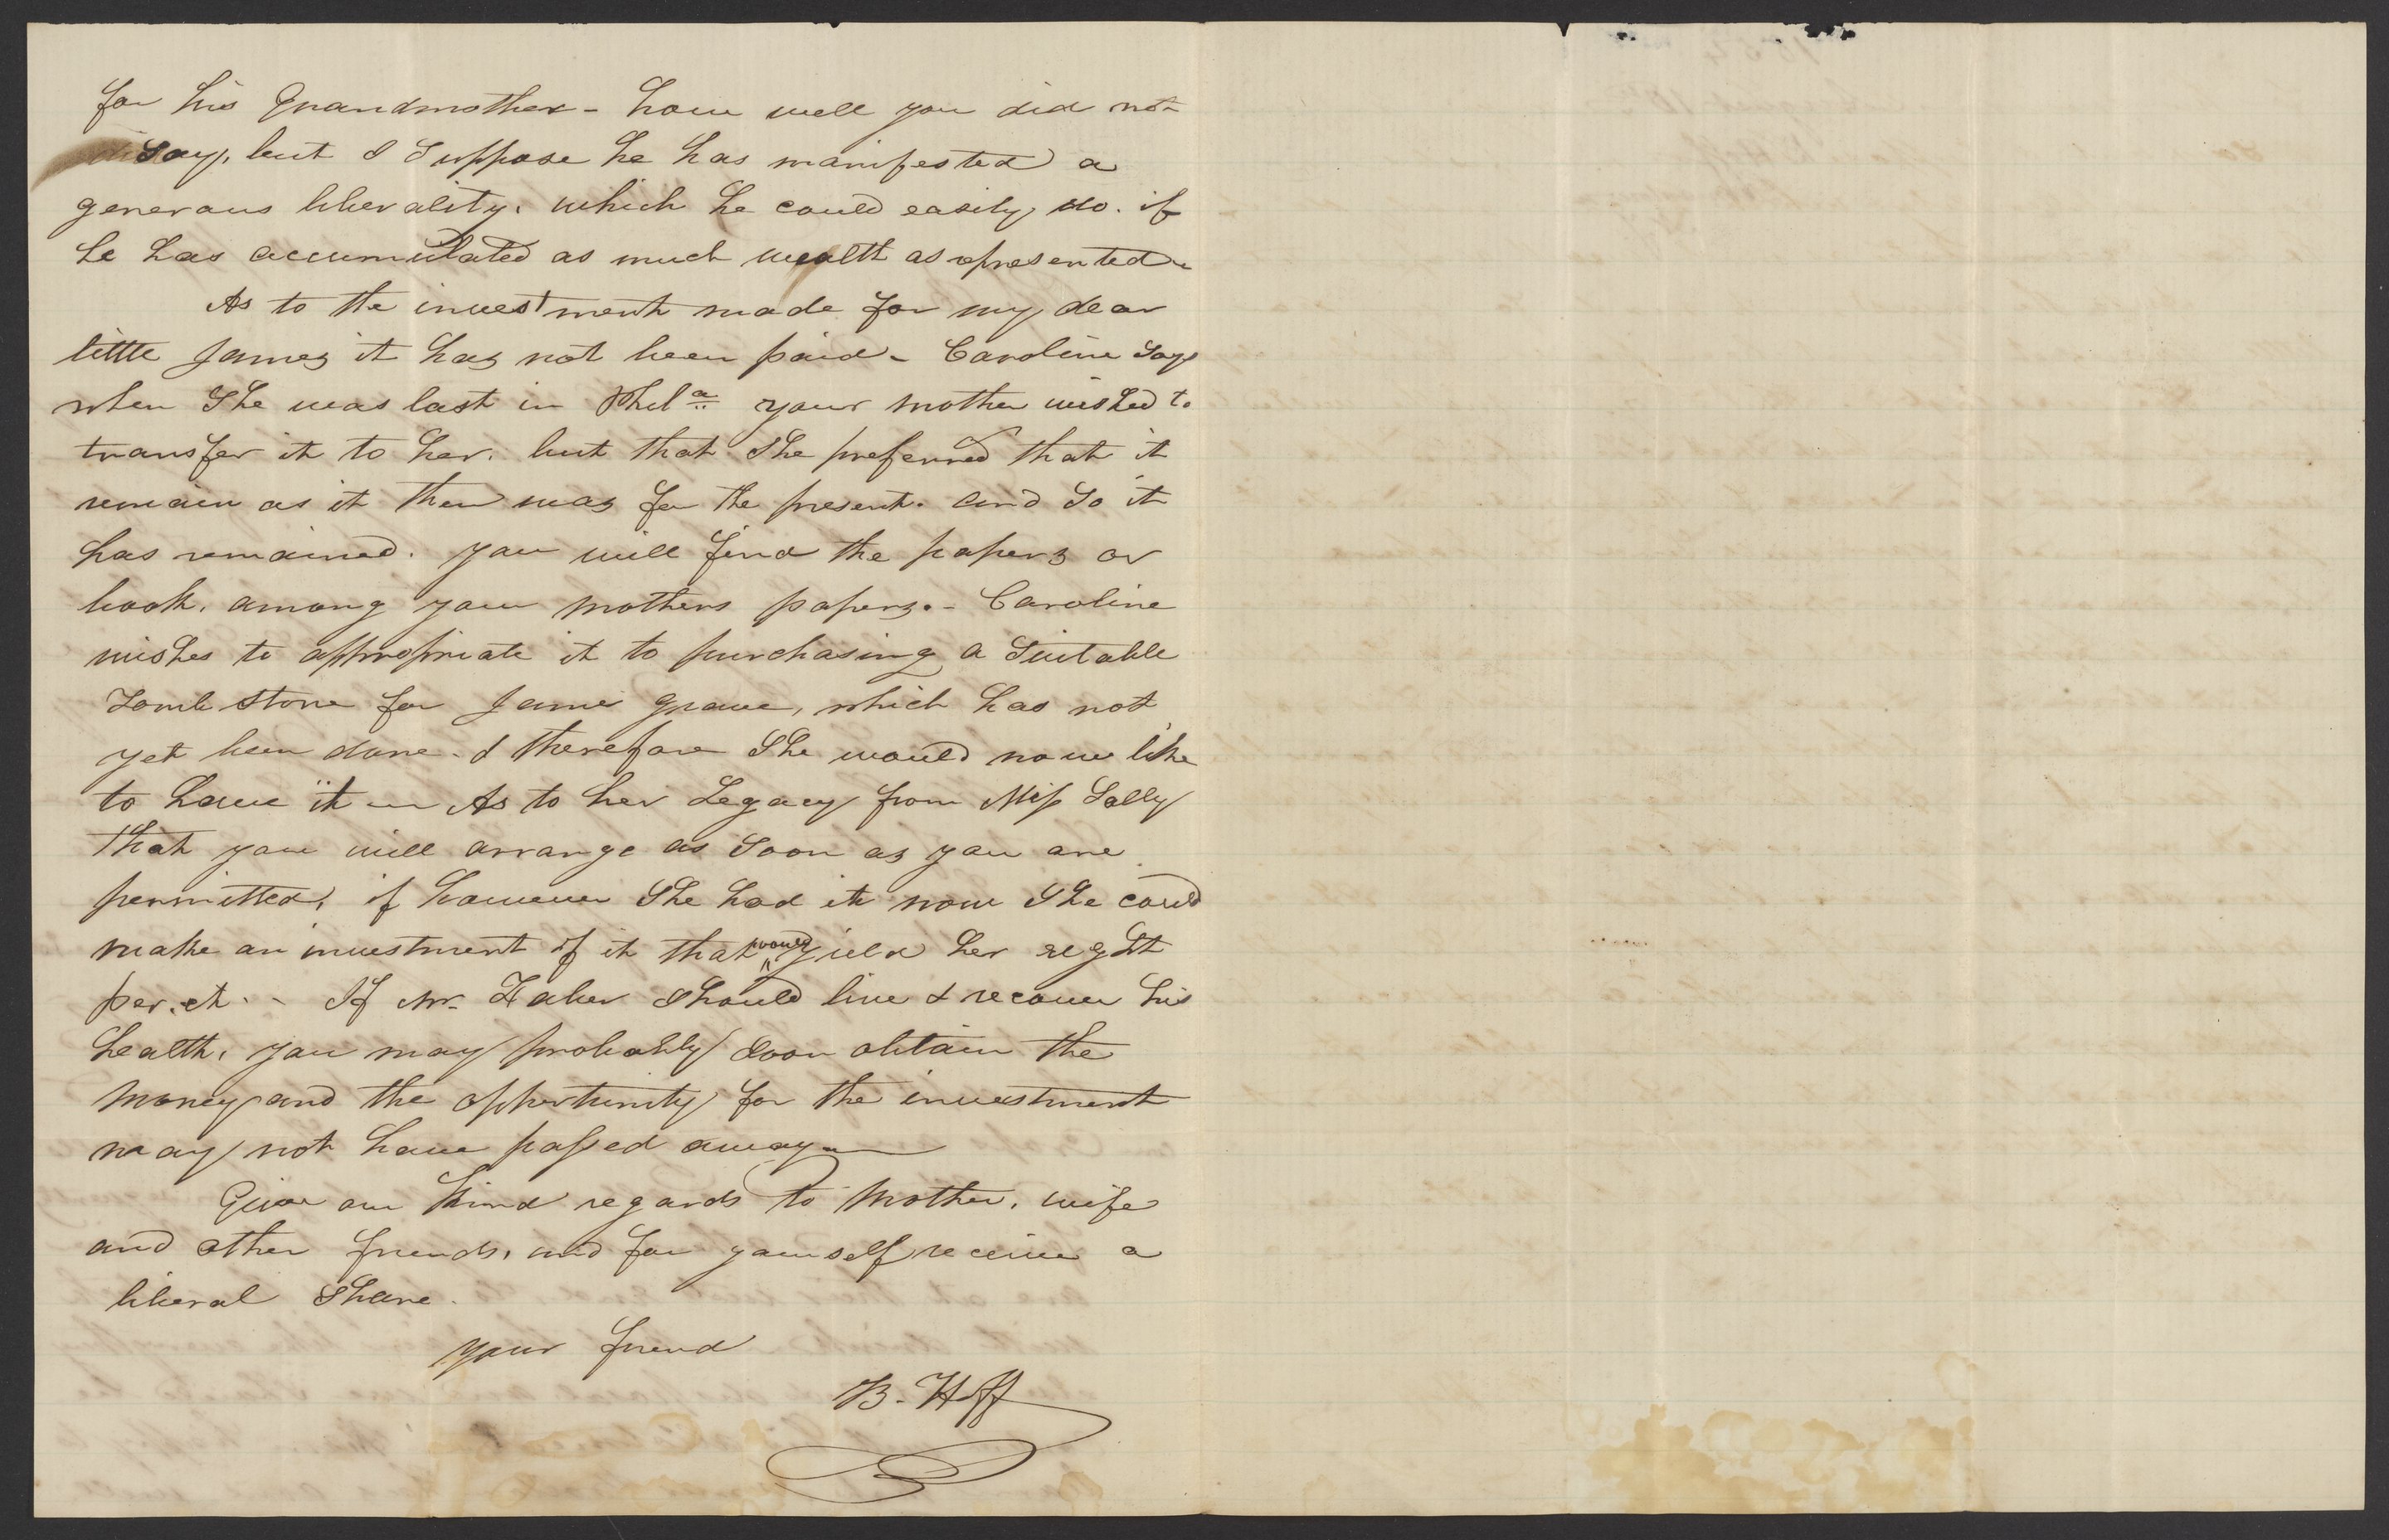 for his Grandmother - how well you did not
say, but I suppose he has manifested a
generous liberality, which he could easily do. if
he has accumulated as much wealth as represented -
As to the investment made for my dear
little James it has not been paid - Caroline says
when she was last in Phila your mother wished to
transfer it to her. but that she preferred that it
remain as it then was for the present. and so it
has remained. you will find the papers or
book. among your mothers papers. - Caroline
wishes to appropriate it to purchasing a suitable
Tomb stone for Jamie grave, which has not
yet been done. & therefore she would now like
to have it - As to her Legacy from Miss Sally
that you will arrange as soon as you are
permitted, if however she had it now she could
make an investment of it that would yield her eight
per. ct. - If Mr. Faber should live & recover his
health, you may probably soon obtain the
money and the opportunity for the investment
may not have passed away -
Give our kind regards to Mother, wife
and other friends, and for yourself receive a
liberal share.
your friend
B. Hoff